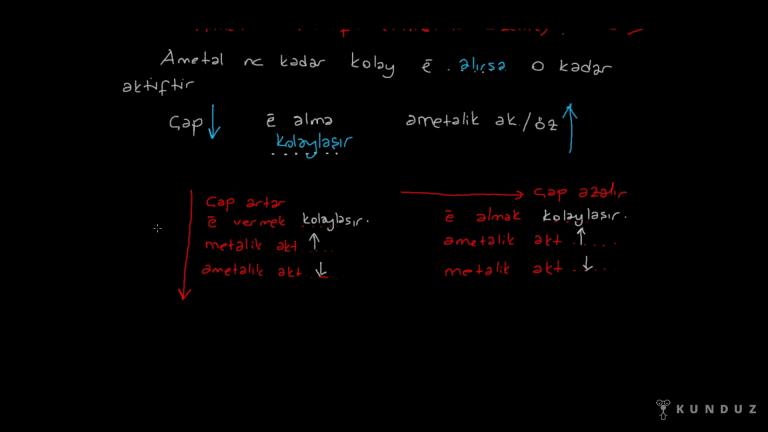 Ametal ne kadar kolay ē alırsa o kadar
aktiftir
Çap ↓ ē alma ametalik ak/öz ↑
kolaylaşır
Çap artar
ē vermek kolaylaşır.
metalik akt ↑ ...
ametalik akt ↓ ...
→ Çap azalır
ē almak kolaylaşır.
ametalik akt ↑ .....
metalik akt ↓ .....
KUNDUZ